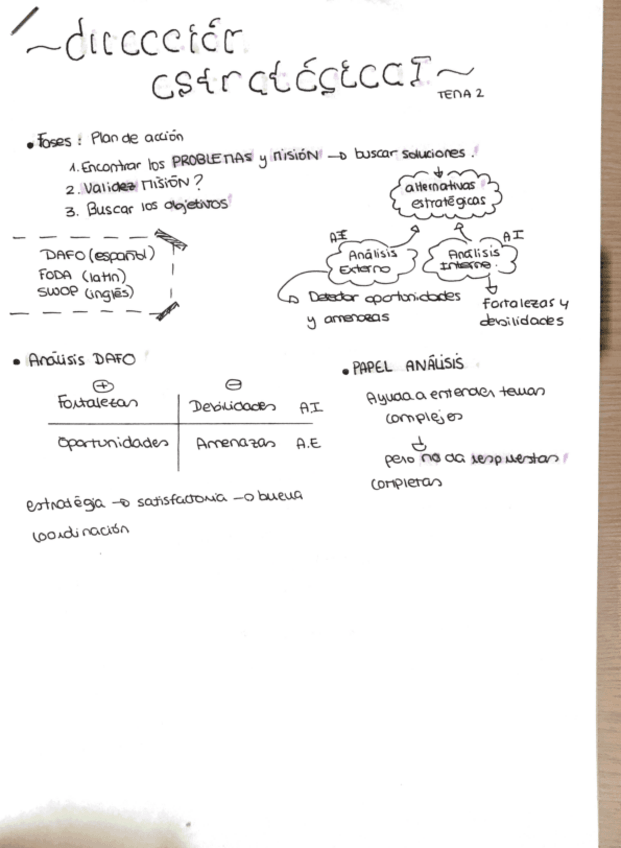 ~dirección
estratégica I~
TEMA 2
• Fases: Plan de acción
1. Encontrar los PROBLEMAS y MISIÓN → buscar soluciones.
2. Validez MISIÓN?
3. Buscar los objetivos
alternativas
estratégicas
AE
Análisis
Externo
AI
Análisis
Interno.
Detectar oportunidades
y amenazas
fortalezas y
debilidades
DAFO (español)
FODA (latín)
SWOP (inglés)
• Análisis DAFO
+ −
Fortalezas Debilidades A.I
Oportunidades Amenazas A.E
estratégia → satisfactoria → buena
coordinación
• PAPEL ANÁLISIS
Ayuda a entender temas
complejos
pero no da respuestas
completas